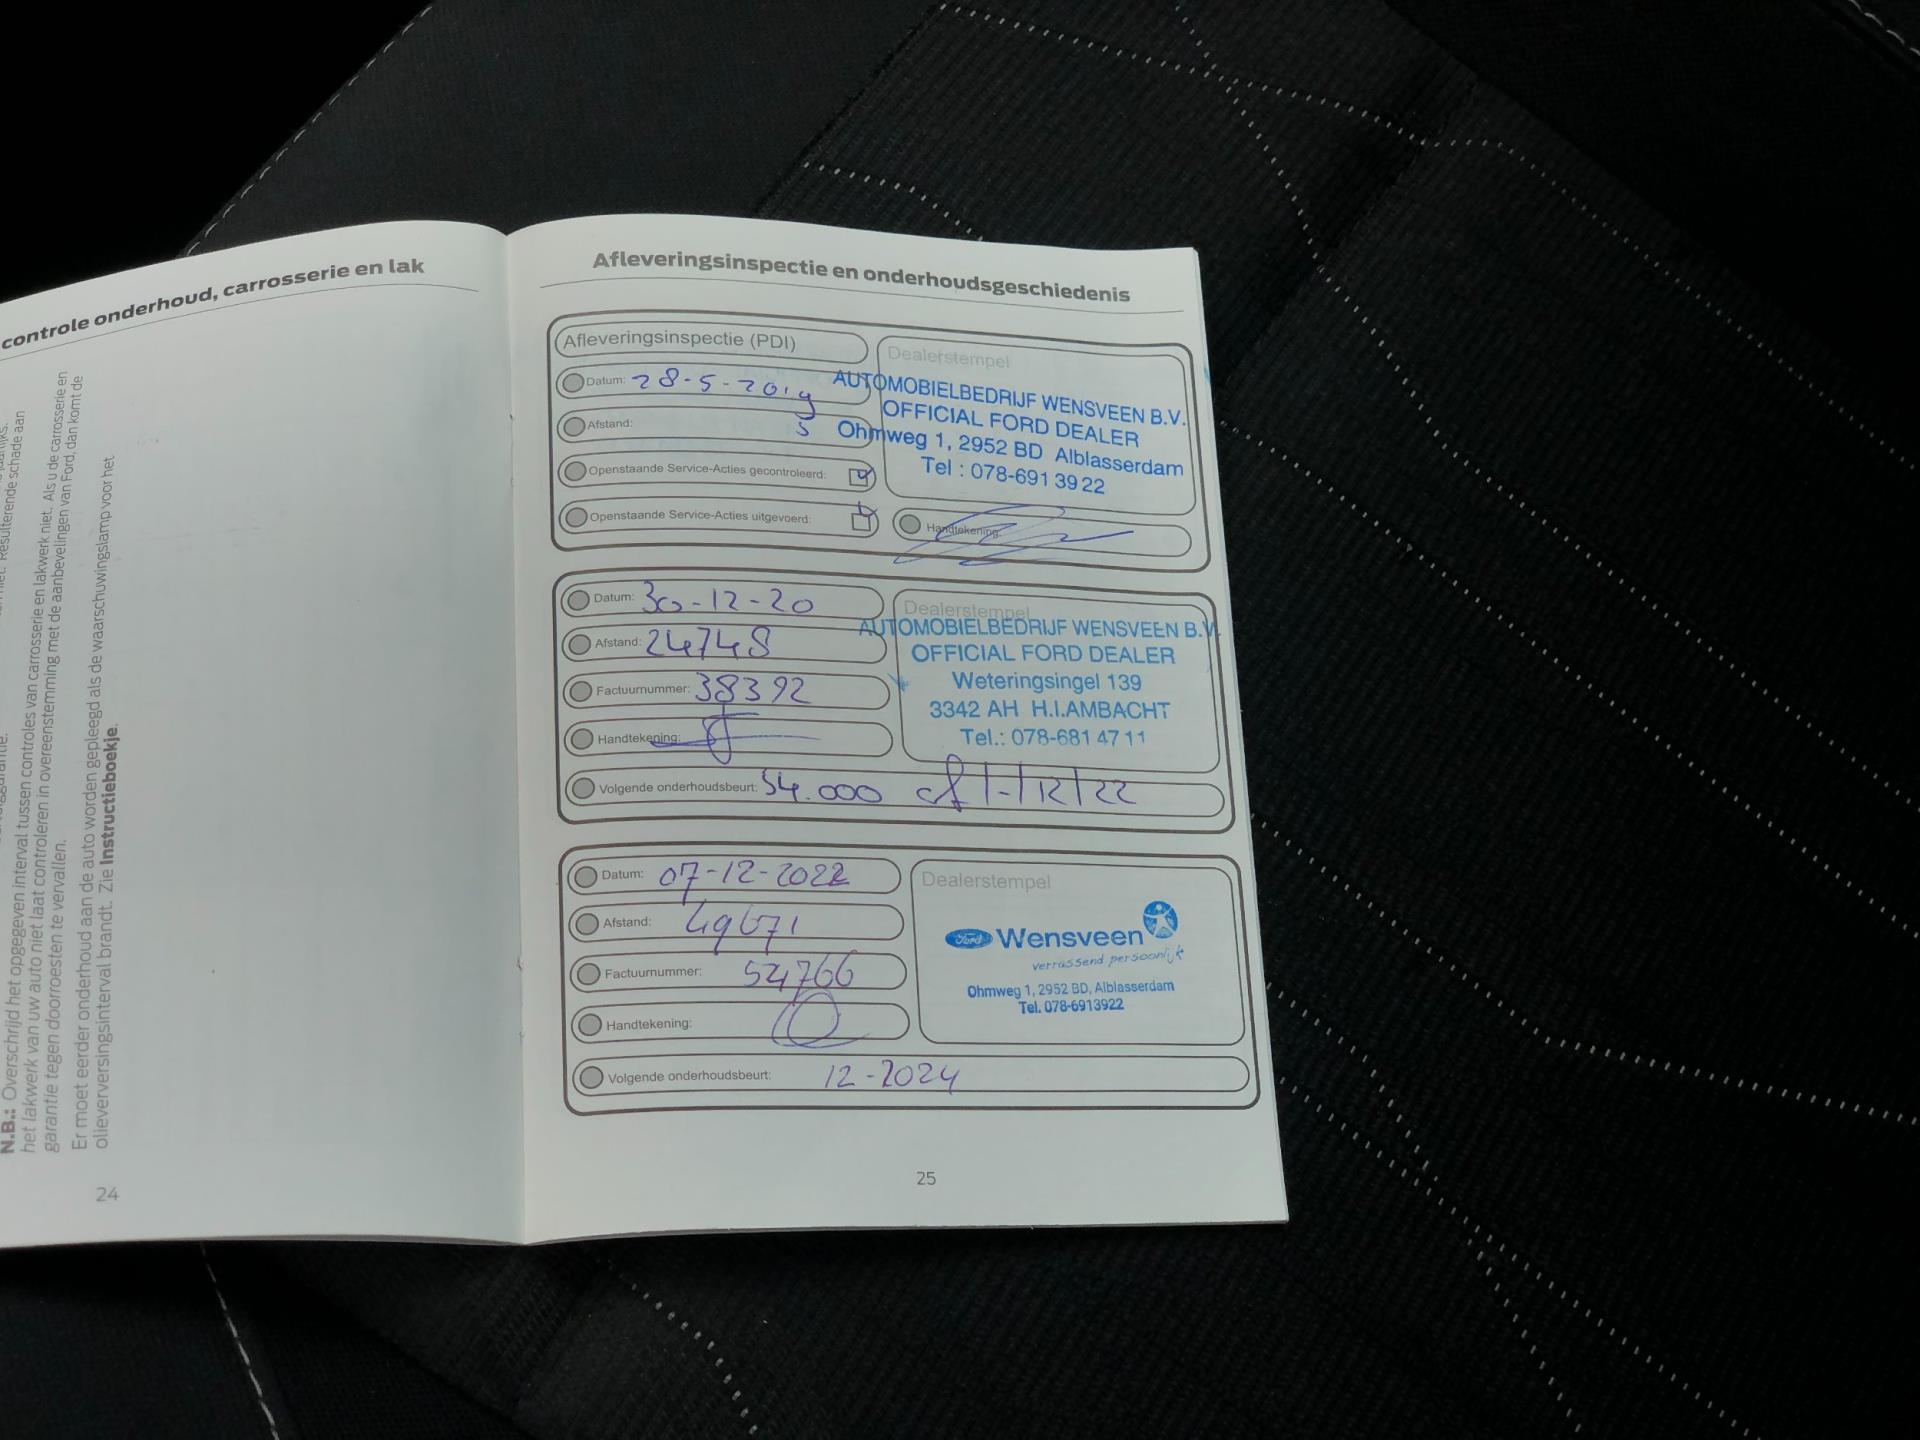 controle onderhoud, carrosserie en lak
N.B.: Overschrijd het opgegeven interval tussen controles van carrosserie en lakwerk niet. Als u de carrosserie en
het lakwerk van uw auto niet laat controleren in overeenstemming met de aanbevelingen van Ford, dan komt de
garantie tegen doorroesten te vervallen.
Er moet eerder onderhoud aan de auto worden gepleegd als de waarschuwingslamp voor het
olieverversingsinterval brandt. Zie Instructieboekje.
24
Afleveringsinspectie en onderhoudsgeschiedenis
Afleveringsinspectie (PDI)
Datum: 28-5-2019
Afstand: 5
Openstaande Service-Acties gecontroleerd:
Openstaande Service-Acties uitgevoerd:
Dealerstempel
AUTOMOBIELBEDRIJF WENSVEEN B.V.
OFFICIAL FORD DEALER
Ohmweg 1, 2952 BD Alblasserdam
Tel : 078-691 39 22
Handtekening:
Datum: 30-12-20
Afstand: 24748
Factuurnummer: 38392
Handtekening:
Dealerstempel
AUTOMOBIELBEDRIJF WENSVEEN B.V.
OFFICIAL FORD DEALER
Weteringsingel 139
3342 AH H.I.AMBACHT
Tel.: 078-681 47 11
Volgende onderhoudsbeurt: 54.000 of 1-/12/22
Datum: 07-12-2022
Afstand: 49671
Factuurnummer: 54766
Handtekening:
Dealerstempel
Ford Wensveen
verrassend persoonlijk
Ohmweg 1, 2952 BD, Alblasserdam
Tel. 078-6913922
Volgende onderhoudsbeurt: 12-2024
25